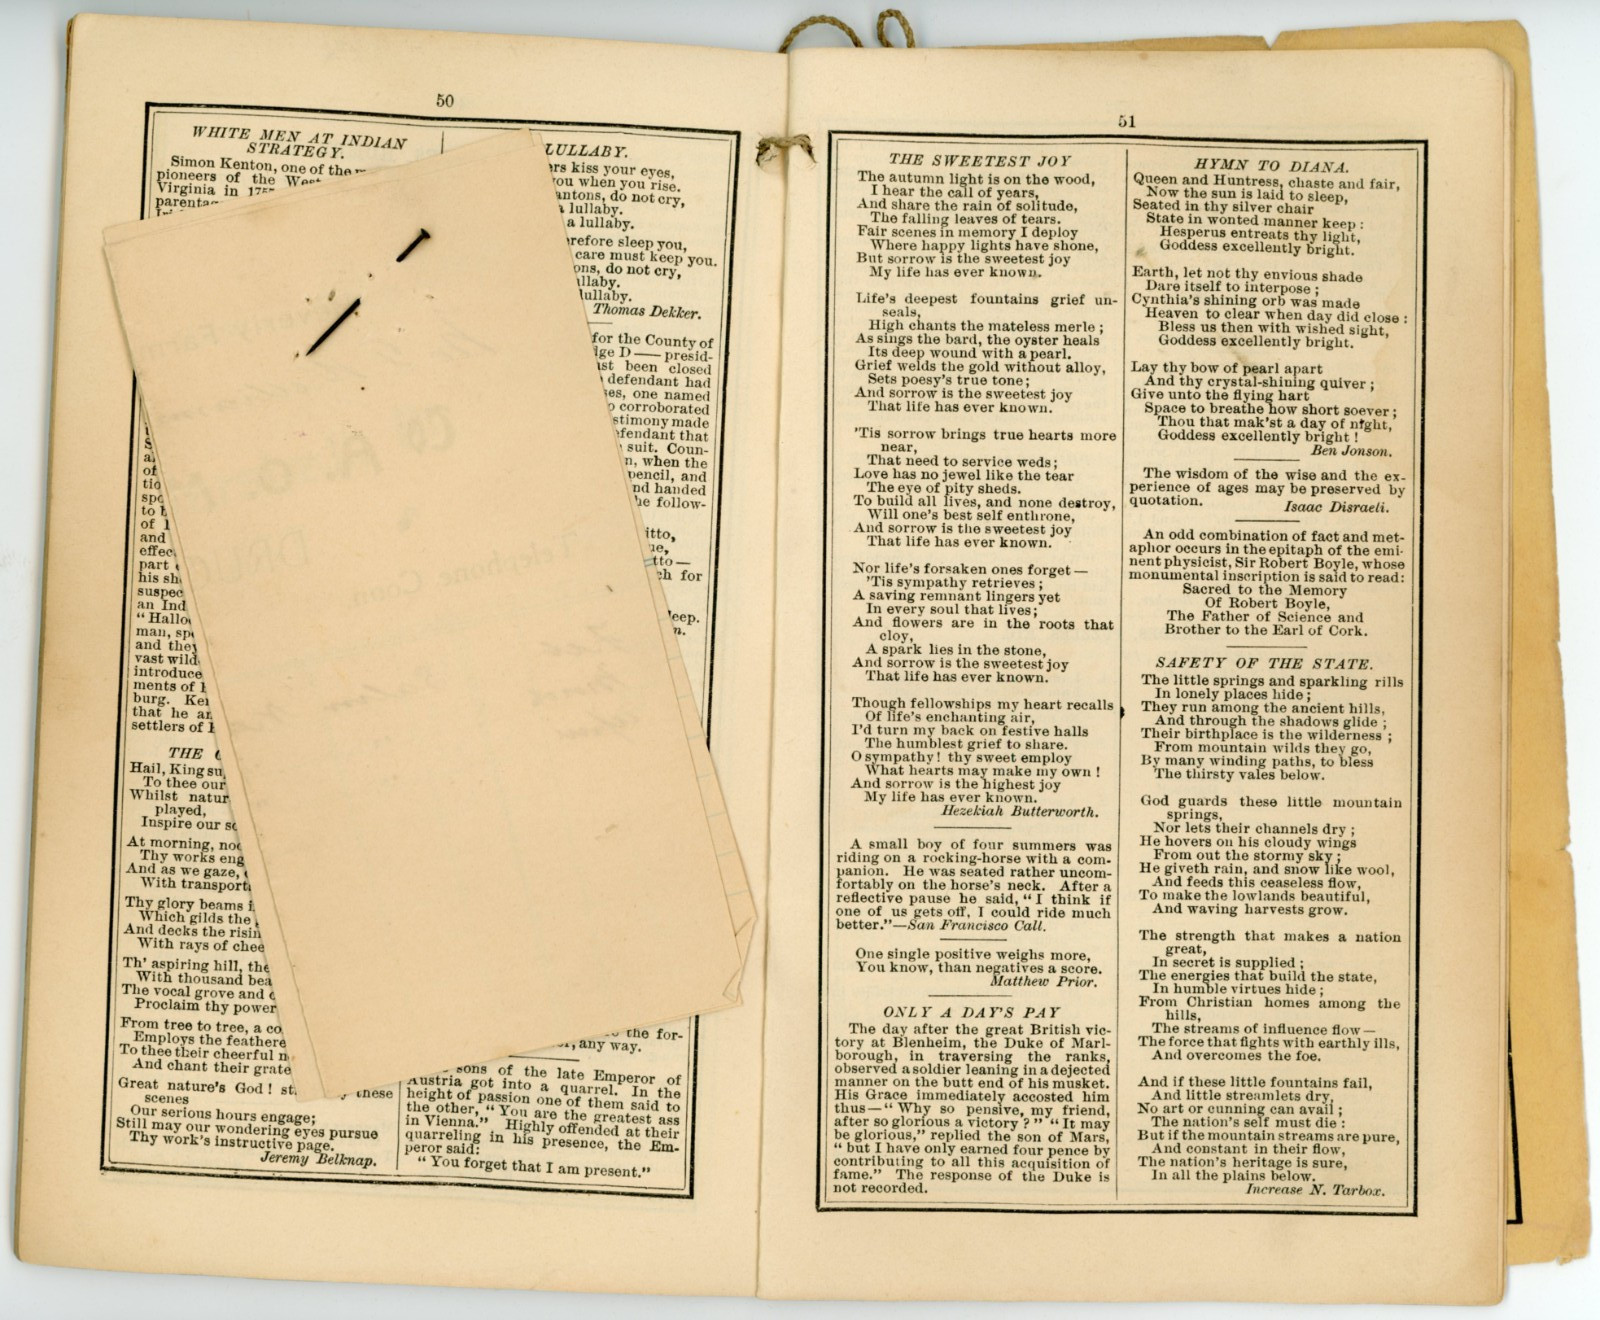 50
WHITE MEN AT INDIAN
STRATEGY.
Simon Kenton, one of the
pioneers of the
Virginia in
settlers of
THE
Hail, King
To thee our
Whilst
played,
Inspire our
At morning,
Thy works
And as we gaze,
With
Thy glory beams
Which gilds the
And decks the
With rays of
Th' aspiring hill, the
With thousand
The vocal grove and
Proclaim thy power
From tree to tree, a
Employs the
To thee their cheerful
And chant their
Great nature's God! these
scenes
Our serious hours engage;
Still may our wondering eyes pursue
Thy work's instructive page.
Jeremy Belknap.
LULLABY.
kiss your eyes,
you when you rise.
do not cry,
a lullaby.
a lullaby.
sleep you,
care must keep you.
do not cry,
lullaby.
Thomas Dekker.
for the County of
D — presid-
been closed
defendant had
one named
corroborated
made
defendant that
suit. Coun-
when the
pencil, and
handed
follow-
for
the for-
any way.
sons of the late Emperor of
Austria got into a quarrel. In the
height of passion one of them said to
the other, "You are the greatest ass
in Vienna." Highly offended at their
quarreling in his presence, the Em-
peror said:
"You forget that I am present."
51
THE SWEETEST JOY
The autumn light is on the wood,
I hear the call of years,
And share the rain of solitude,
The falling leaves of tears.
Fair scenes in memory I deploy
Where happy lights have shone,
But sorrow is the sweetest joy
My life has ever known.
Life's deepest fountains grief un-
seals,
High chants the mateless merle;
As sings the bard, the oyster heals
Its deep wound with a pearl.
Grief welds the gold without alloy,
Sets poesy's true tone;
And sorrow is the sweetest joy
That life has ever known.
'Tis sorrow brings true hearts more
near,
That need to service weds;
Love has no jewel like the tear
The eye of pity sheds.
To build all lives, and none destroy,
Will one's best self enthrone,
And sorrow is the sweetest joy
That life has ever known.
Nor life's forsaken ones forget —
'Tis sympathy retrieves;
A saving remnant lingers yet
In every soul that lives;
And flowers are in the roots that
cloy,
A spark lies in the stone,
And sorrow is the sweetest joy
That life has ever known.
Though fellowships my heart recalls
Of life's enchanting air,
I'd turn my back on festive halls
The humblest grief to share.
O sympathy! thy sweet employ
What hearts may make my own!
And sorrow is the highest joy
My life has ever known.
Hezekiah Butterworth.
A small boy of four summers was
riding on a rocking-horse with a com-
panion. He was seated rather uncom-
fortably on the horse's neck. After a
reflective pause he said, "I think if
one of us gets off, I could ride much
better."—San Francisco Call.
One single positive weighs more,
You know, than negatives a score.
Matthew Prior.
ONLY A DAY'S PAY
The day after the great British vic-
tory at Blenheim, the Duke of Marl-
borough, in traversing the ranks,
observed a soldier leaning in a dejected
manner on the butt end of his musket.
His Grace immediately accosted him
thus—"Why so pensive, my friend,
after so glorious a victory?" "It may
be glorious," replied the son of Mars,
"but I have only earned four pence by
contributing to all this acquisition of
fame." The response of the Duke is
not recorded.
HYMN TO DIANA.
Queen and Huntress, chaste and fair,
Now the sun is laid to sleep,
Seated in thy silver chair
State in wonted manner keep:
Hesperus entreats thy light,
Goddess excellently bright.
Earth, let not thy envious shade
Dare itself to interpose;
Cynthia's shining orb was made
Heaven to clear when day did close:
Bless us then with wished sight,
Goddess excellently bright.
Lay thy bow of pearl apart
And thy crystal-shining quiver;
Give unto the flying hart
Space to breathe how short soever;
Thou that mak'st a day of night,
Goddess excellently bright!
Ben Jonson.
The wisdom of the wise and the ex-
perience of ages may be preserved by
quotation.
Isaac Disraeli.
An odd combination of fact and met-
aphor occurs in the epitaph of the emi-
nent physicist, Sir Robert Boyle, whose
monumental inscription is said to read:
Sacred to the Memory
Of Robert Boyle,
The Father of Science and
Brother to the Earl of Cork.
SAFETY OF THE STATE.
The little springs and sparkling rills
In lonely places hide;
They run among the ancient hills,
And through the shadows glide;
Their birthplace is the wilderness;
From mountain wilds they go,
By many winding paths, to bless
The thirsty vales below.
God guards these little mountain
springs,
Nor lets their channels dry;
He hovers on his cloudy wings
From out the stormy sky;
He giveth rain, and snow like wool,
And feeds this ceaseless flow,
To make the lowlands beautiful,
And waving harvests grow.
The strength that makes a nation
great,
In secret is supplied;
The energies that build the state,
In humble virtues hide;
From Christian homes among the
hills,
The streams of influence flow—
The force that fights with earthly ills,
And overcomes the foe.
And if these little fountains fail,
And little streamlets dry,
No art or cunning can avail;
The nation's self must die:
But if the mountain streams are pure,
And constant in their flow,
The nation's heritage is sure,
In all the plains below.
Increase N. Tarbox.